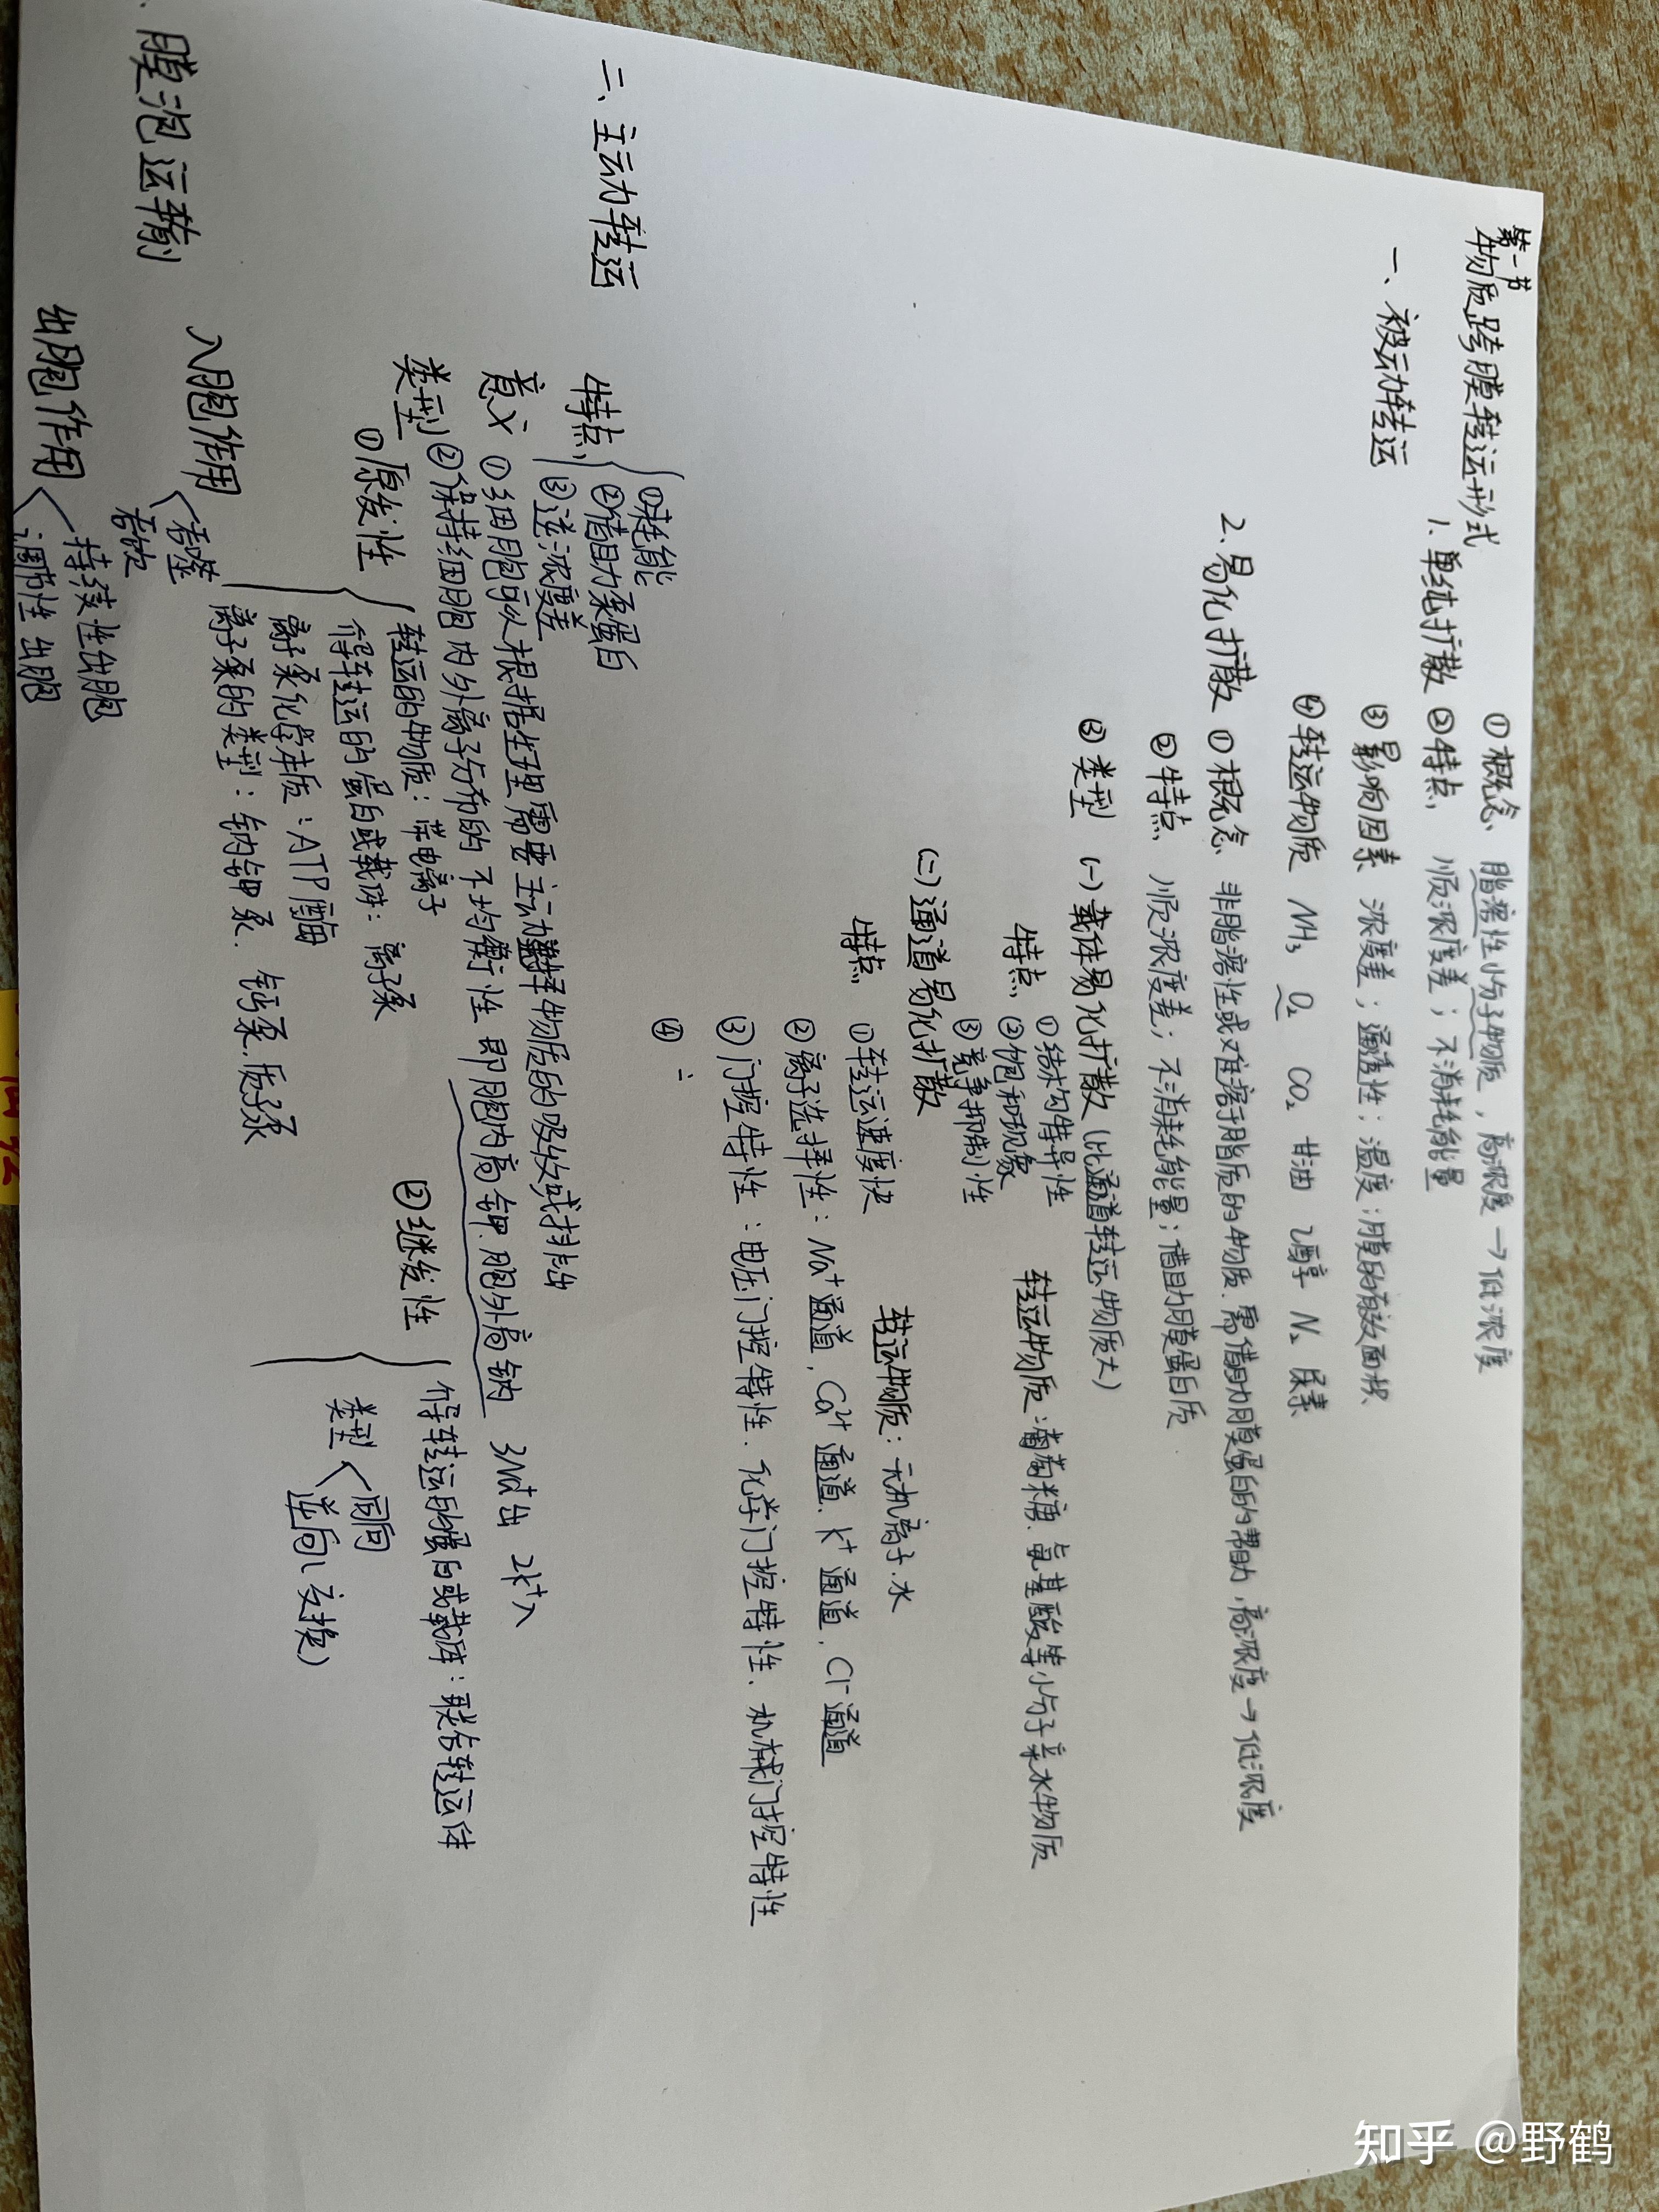 第一节
物质跨膜转运形式
一、被动转运
1. 单纯扩散 ①概念、脂溶性小分子物质，高浓度→低浓度
②特点、顺浓度差；不消耗能量
③影响因素 浓度差；通透性；温度；膜的有效面积
④转运物质 NH₃ O₂ CO₂ 甘油 乙醇 N₂ 尿素
2. 易化扩散 ①概念 非脂溶性或难溶于脂质的物质、需借助膜蛋白的帮助，高浓度→低浓度
②特点、顺浓度差；不消耗能量；借助膜蛋白质
③类型 (一)载体易化扩散（比通道转运物质大）
特点、①结构特异性 转运物质：葡萄糖、氨基酸等小分子亲水物质
②饱和现象
③竞争抑制性
(二)通道易化扩散
特点、①转运速度快 转运物质：无机离子.水
②离子选择性：Na⁺通道，Ca²⁺通道、K⁺通道，Cl⁻通道
③门控特性：电压门控特性、化学门控特性、机械门控特性
④
二、主动转运
特点、①耗能
②借助泵蛋白
③逆浓度差
意义 ①细胞可以根据生理需要主动选择物质的吸收或排出
②保持细胞内外离子分布的不均衡性 即胞内高钾.胞外高钠 3Na⁺出 2K⁺入
类型
①原发性 转运的物质：带电离子
介导转运的蛋白或载体：离子泵
离子泵化学本质：ATP酶
离子泵的类型：钠钾泵、钙泵.质子泵
②继发性 介导转运的蛋白或载体：联合转运体
类型 同向
逆向（交换）
膜泡运输
入胞作用 吞噬
吞饮
出胞作用 持续性出胞
调节性出胞
知乎 @野鹤